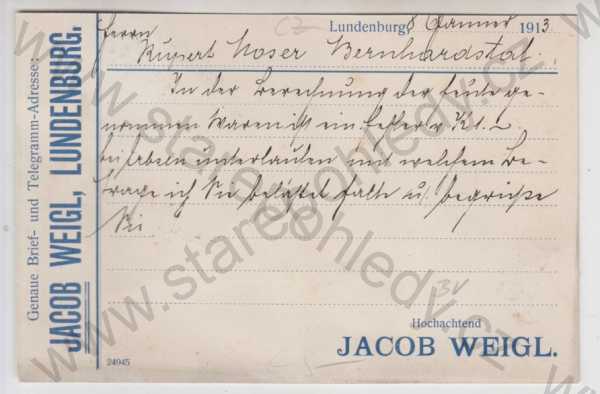 Genaue Brief- und Telegramm-Adresse:
JACOB WEIGL, LUNDENBURG.
Lundenburg, 8 Jänner 1913
Herrn
Rupert Moser Bernhardstal.
In der Berechnung der heute ge-
nommen Waren ist ein Fehler v K 1.
unterlaufen mit welchem Be-
trage ich Sie belastet halte u. begrüße
Sie
Hochachtend
JACOB WEIGL.
24945
www.stareohledy.cz